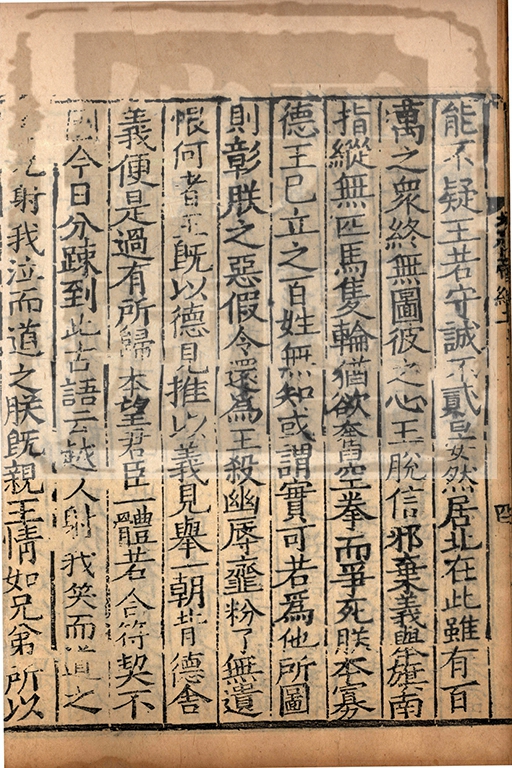 能不疑王若守誠不貳晏然居北在此雖有百
萬之衆終無圖彼之心王脫信邪棄義舉旗南
指縱無匹馬隻輪猶欲奮空拳而爭死朕本寡
德王已立之百姓無知或謂實可若爲他所圖
則彰朕之惡假令還爲王殺幽辱虀粉了無遺
恨何者王旣以德見推以義見舉一朝背德舍
義便是過有所歸本望君臣一體若合符契不
圖今日分踈到此古語云越人射我笑而道之
兄射我泣而道之朕旣親王情如兄弟所以